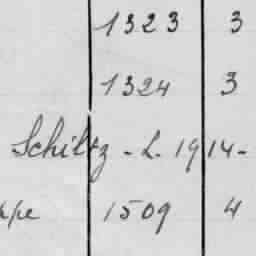 1323 3
1324 3
Schiltz - L. 1914 -
1509 4